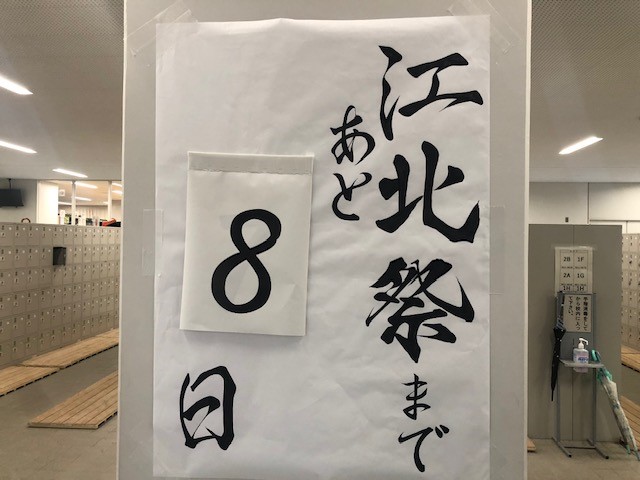 江北祭まで
あと
8
日
2B 1F
2A 1G